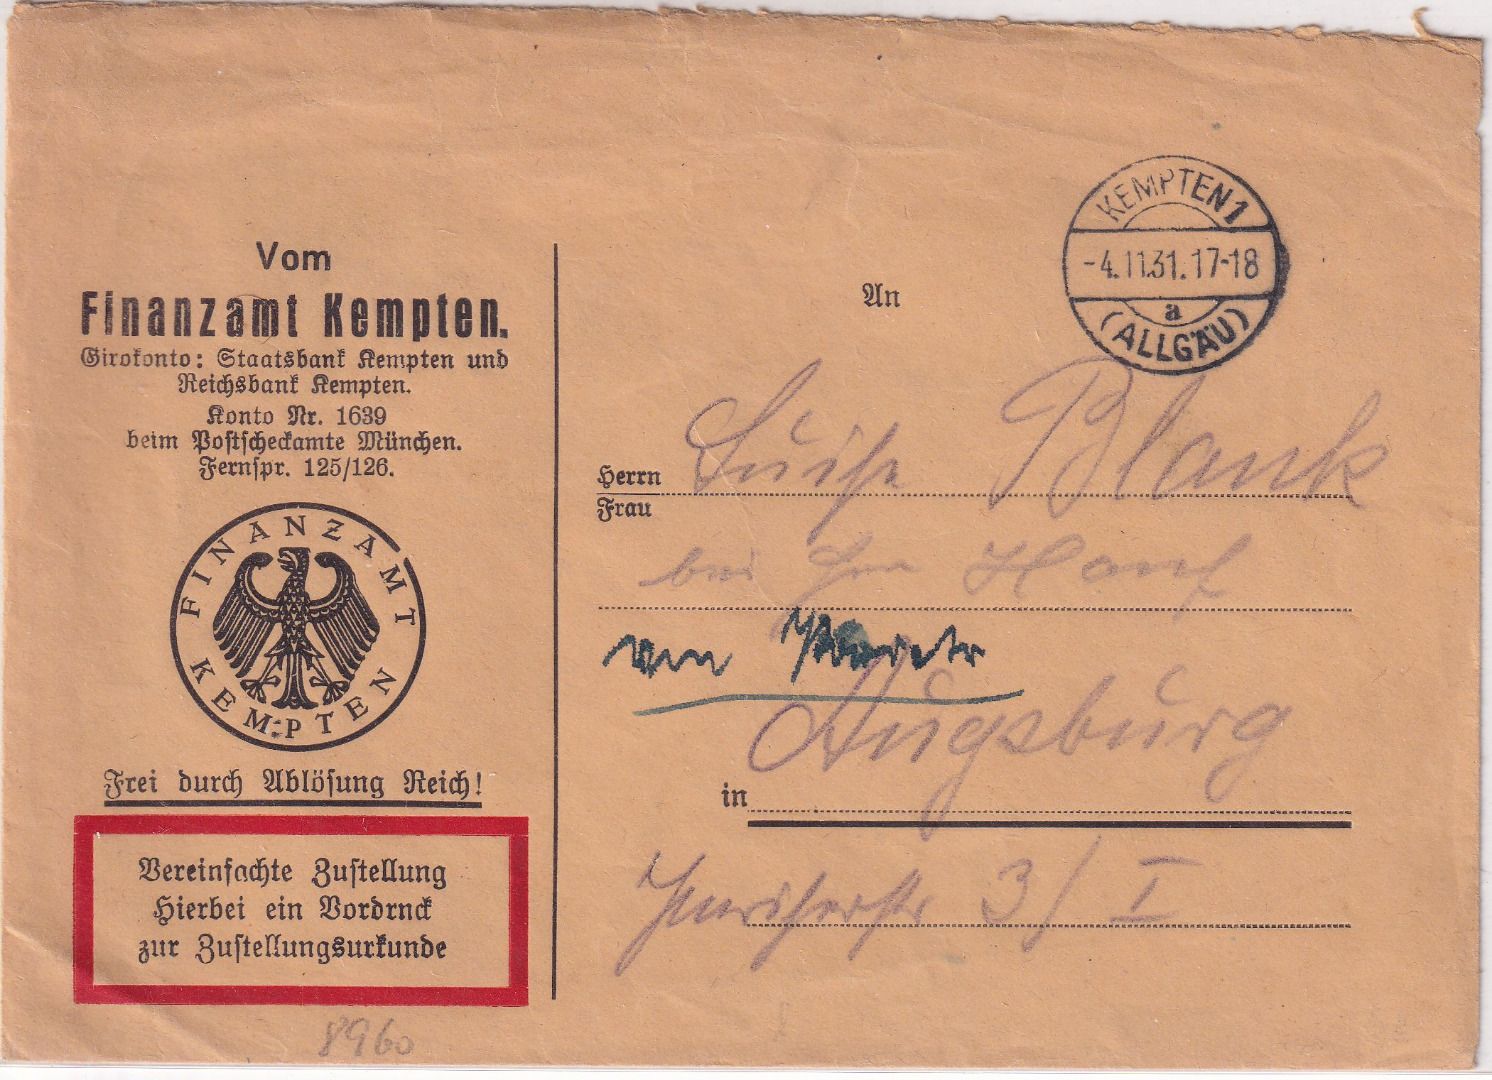 Vom
Finanzamt Kempten.
Girokonto: Staatsbank Kempten und
Reichsbank Kempten.
Konto Nr. 1639
beim Postscheckamte München.
Fernspr. 125/126.
FINANZAMT
KEMPTEN
Frei durch Ablösung Reich!
Vereinfachte Zustellung
Hierbei ein Vordrnck
zur Zustellungsurkunde
8960
KEMPTEN 1
-4.11.31.17-18
a
(ALLGÄU)
An
Herrn
Frau
Luise Blank
bei
Augsburg
in
3/I